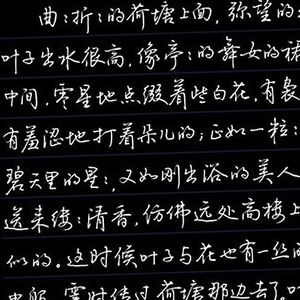 曲:折:的荷塘上面,弥望的
叶子出水很高,像亭:的舞女的裙
中间,零星地点缀着些白花,有袅
有羞涩地打着朵儿的;正如一粒:
碧天里的星:,又如刚出浴的美人
送来缕:清香,仿佛远处高楼上
似的。这时候叶子与花也有一丝的
般,霎时传过荷塘那边去了。叶